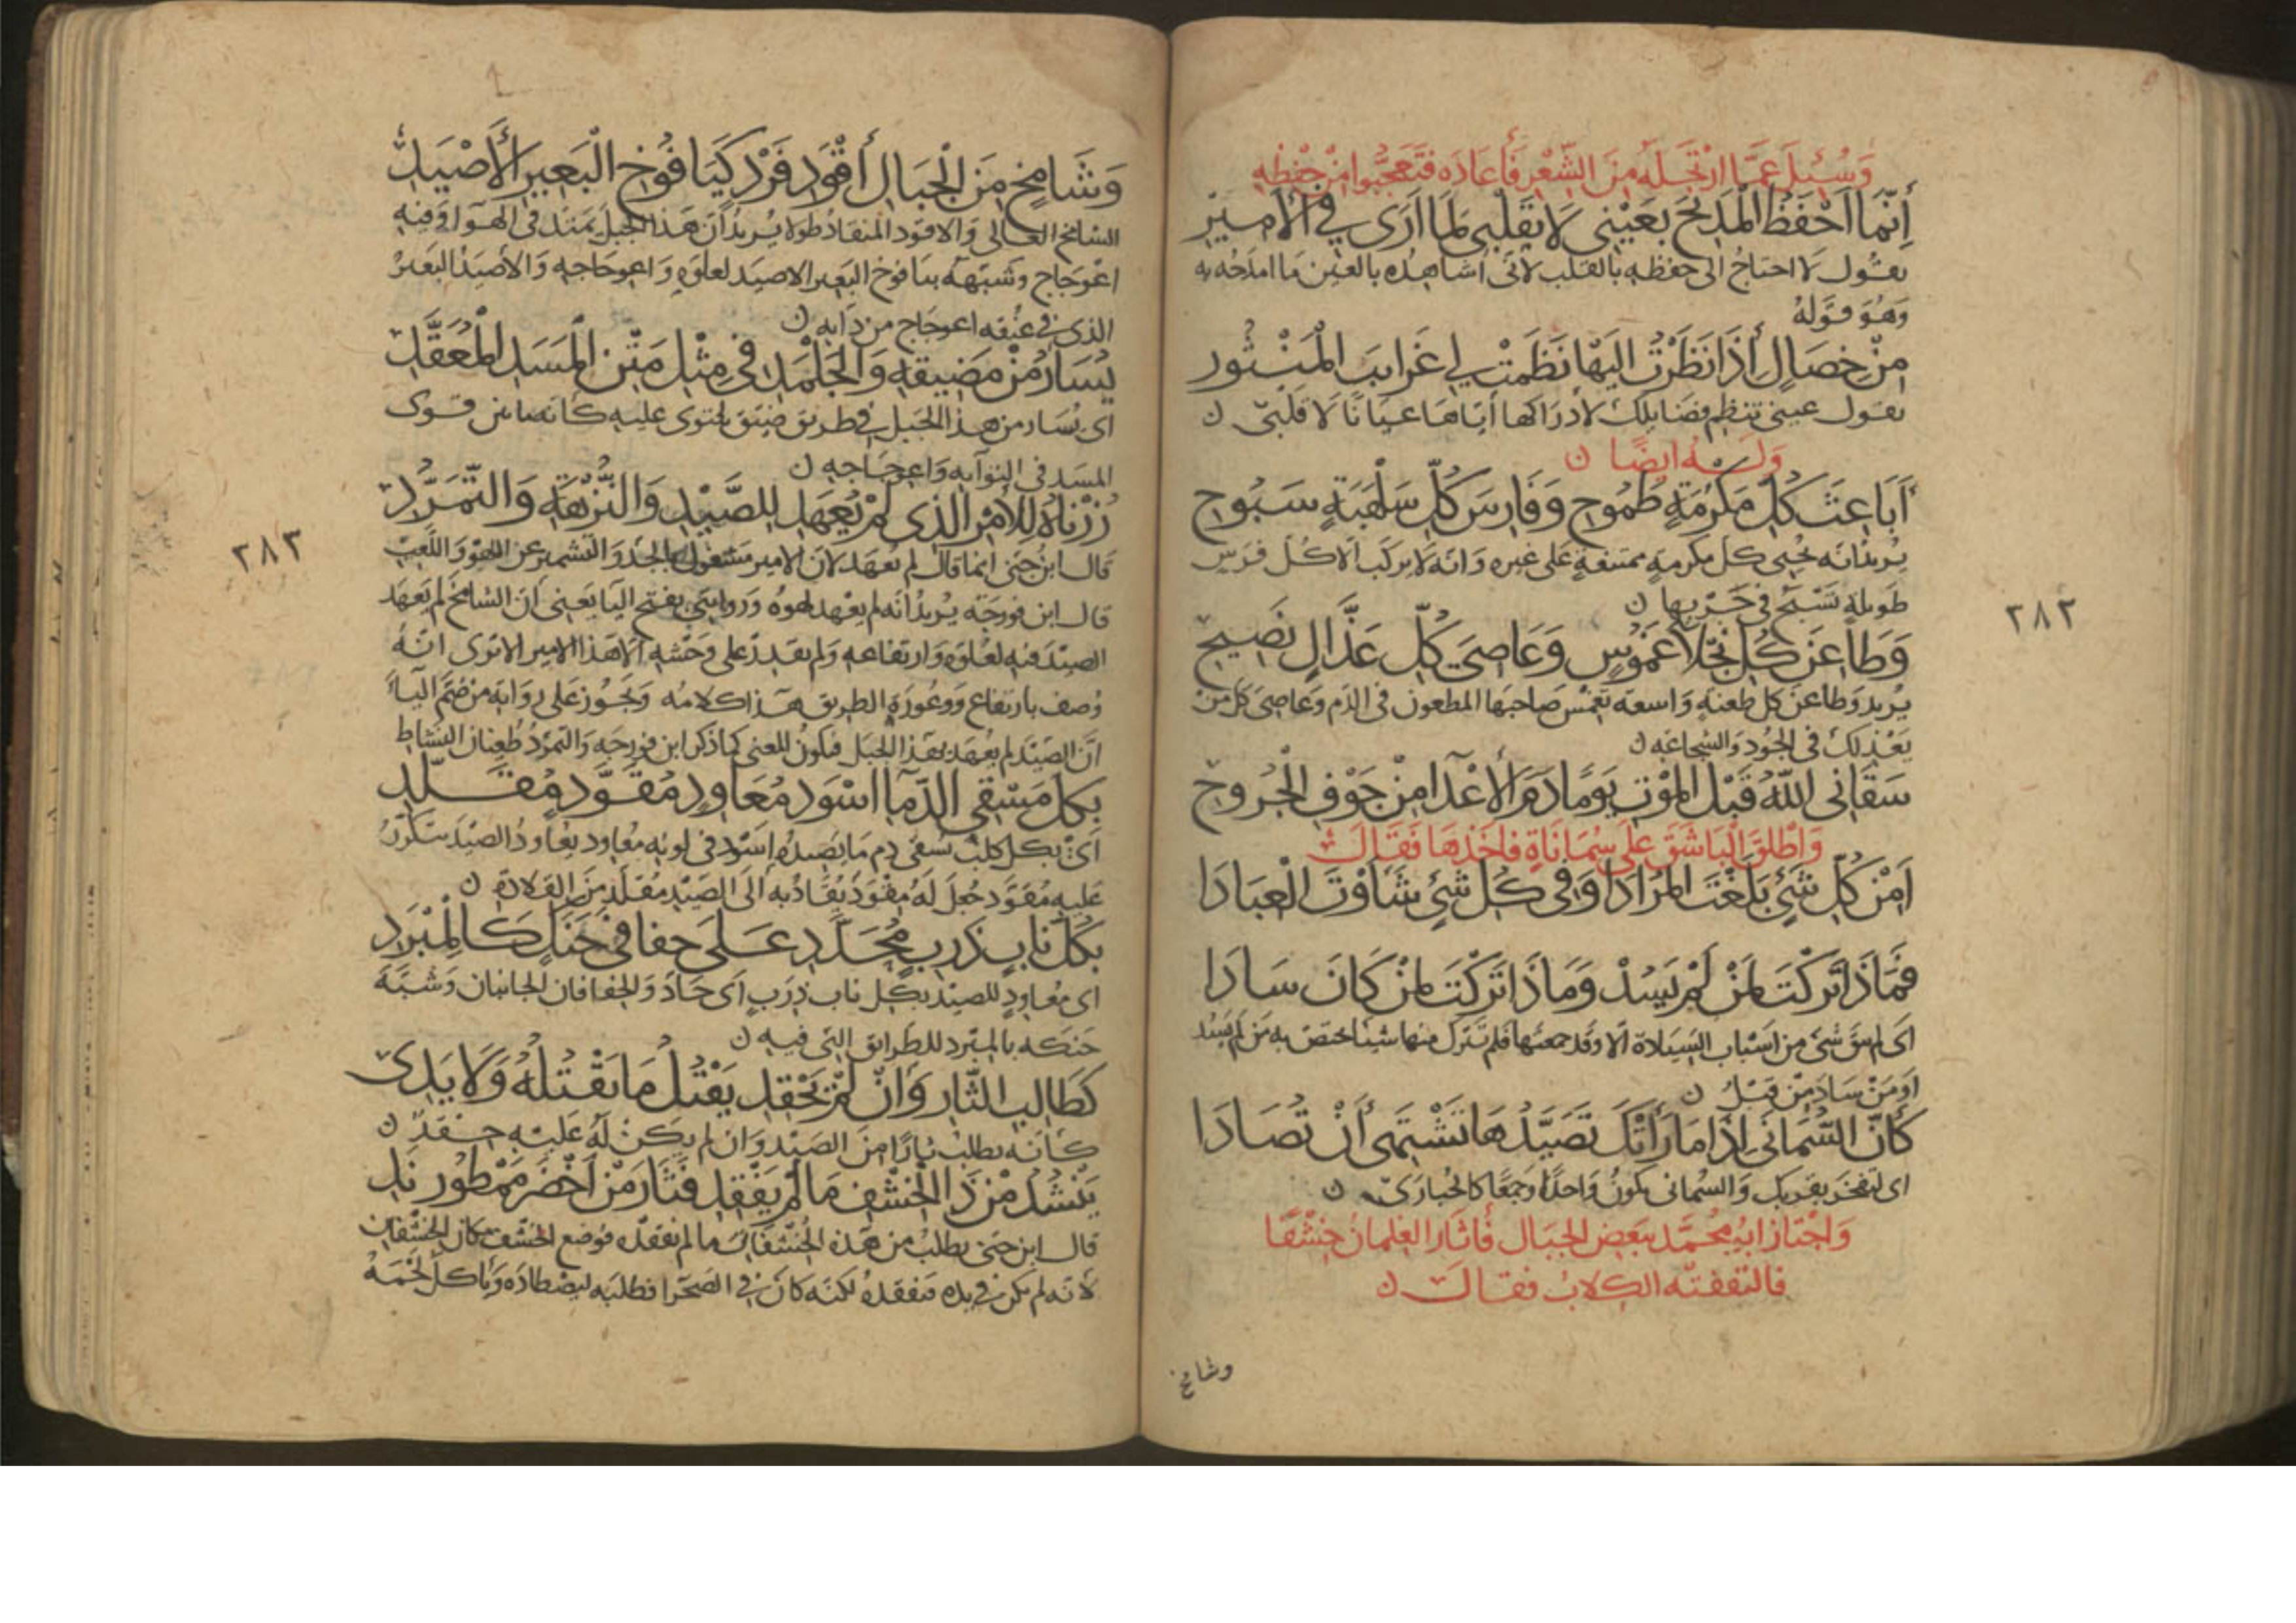 وَسُئِلَ عَمَّا ارْتَجَلَهُ مِنَ الشِّعْرِ فَأَعَادَه فَتَعَجَّبُوا مِنْ حِفْظِهِ
إِنَّمَا أَحْفَظُ الْمَدِيحَ بِعَيْنِي لَا بِقَلْبِي لِمَا أَرَى فِي الْأَمِيرِ
يقول لا احتاج الى حفظه بالقلب لانى اشاهده بالعين ما امدحه به
وَهُوَ قوله
مِنْ خِصَالٍ إِذَا نَظَرْتُ إِلَيْهَا نَظَمَتْ لِي غَرَايِبَ الْمَنْثُورِ
يقول عينى تنظم فضايلك لادراكها اياها عيانا لا قلبى ن
وله ايضًا ن
أَبَاعِثَ كُلِّ مَكْرُمَةٍ طَمُوحٍ وَفَارِسَ كُلِّ سَلْهَبَةٍ سَبُوحِ
يريد انه يحيى كل مكرمة ممتنعة على غيره وانه لا يركب الا كل فرس
طويلة تسبح فى جريها ن
وَطَاعِنَ كُلِّ نَجْلَا غَمُوسٍ وَعَاصِيَ كُلِّ عَذَّالٍ نَصِيحِ
يريد وطاعن كل طعنة واسعة تغمس صاحبها المطعون فى الدم وعاصى كل من
يعذلك فى الجود والشجاعة ن
سَقَانِي اللهُ قَبْلَ الْمَوْتِ يَوْمًا دَمَ الْأَعْدَا مِنْ جَوْفِ الْجُرُوحِ
وَاطْلَقَ الْبَاشَقَ عَلَى سُمَانَاةٍ فاخذها فَقَالَ
أَمِنْ كُلِّ شَيْءٍ بَلَغْتَ الْمُرَادَا وَفِي كُلِّ شَيْءٍ شَأَوْتَ الْعِبَادَا
فَمَاذَا تَرَكْتَ لِمَنْ لَمْ يَسُدْ وَمَاذَا تَرَكْتَ لِمَنْ كَانَ سَادَا
اى لم يبق شئ من اسباب السيادة الا وقد جمعتها فلم تترك منها شيئا يختص به من لم يسد
او من ساد من قبل ن
كَأَنَّ السُّمَانَى إِذَا مَا رَأَتْكَ تَصَيَّدُهَا تَشْتَهِي أَنْ تُصَادَا
اى لتفخر بقربك والسمانى يكون واحدًا وجمعًا كالحبارى ن
وَاجْتَاز ابو محمَّد ببعض الجبال فَأَثَار الغلمانُ خِشْفًا
فالتقفته الكلاب فقال ن
وشامخ
٢٨٣
وَشَامِخٍ مِنَ الْجِبَالِ أَقْوَدِ فَرْدٍ كَيَافُوخِ الْبَعِيرِ الْأَصْيَدِ
الشامخ العالى والاقود المنقاد طولا يريد ان هذا الجبل يمتد فى الهوا وفيه
اعوجاج وشبهه بيافوخ البعير الاصيد لعلوه واعوجاجه والاصيد البعير
الذى فى عنقه اعوجاج من دايه ن
يُسَارُ مِنْ مَضِيقِهِ وَالْجَلْمَدِ فِي مِثْلِ مَتْنِ الْمَسَدِ الْمُعَقَّدِ
اى يُسار من هذا الجبل فى طريق ضيق يحتوى عليه كانه ما بين قوى
المسد فى التوايه واعوجاجه ن
زُرْنَاهُ لِلْأَمْرِ الَّذِي لَمْ يُعْهَدِ لِلصَّيْدِ وَالنُّزْهَةِ وَالتَّمَرُّدِ
قال ابن جنى انما قال لم يعهد لان الامير مشغول بالجد والتشمير عن اللهو واللعب
قال ابن فورجه يريد انه لم يعهد لهوه وروايتى بفتح اليا يعنى ان الشامخ لم يعهد
الصيد فيه لعلوه وارتفاعه ولم يقدر على وحشه الا هذا الامير الا ترى انه
وصف بارتفاع ووعورة الطريق هذا كلامه ويجوز على رواية من ضم اليا
ان الصيد لم يعهد بهذا الجبل فيكون المعنى كما ذكر ابن فورجه والتمرد طغيان النشاط
بِكُلِّ مَسْقِيِّ الدِّمَا أَسْوَدِ مُعَاوِدٍ مُقَوَّدٍ مُقَلَّدِ
اى بكل كلب سقى دم ما يصيده اسود فى لونه معاود يعاود الصيد يتكرر
عليه مقود جعل له مقود يقاد به الى الصيد مقلد من القلادة ن
بِكُلِّ نَابٍ ذَرِبٍ مُحَدَّدِ عَلَى حِفَافَيْ حَنَكٍ كَالْمِبْرَدِ
اى معاود للصيد بكل ناب ذرب اى حاد والحفافان الجانبان وشبه
حنكه بالمبرد للطرايق التى فيه ن
كَطَالِبِ الثَّارِ وَإِنْ لَمْ يَحْقِدِ يَقْتُلُ مَا يَقْتُلُهُ وَلَا يَدِي
كانه يطلب ثارا من الصيد وان لم يكن له عليه حقد ن
يَنْشُدُ مِنْ ذَا الْخِشْفِ مَا لَمْ يَفْقِدِ فَثَارَ مِنْ أَخْضَرَ مَمْطُورٍ نَدِ
قال ابن جنى يطلب من هذه الخشفان ما لم يفقده فوضع الخشف مكان الخشفان
لانه لم يكن فى يده فيفقده لكنه كان فى الصحرا فطلبه ليصطاده وياكل لحمه
٢٨٣